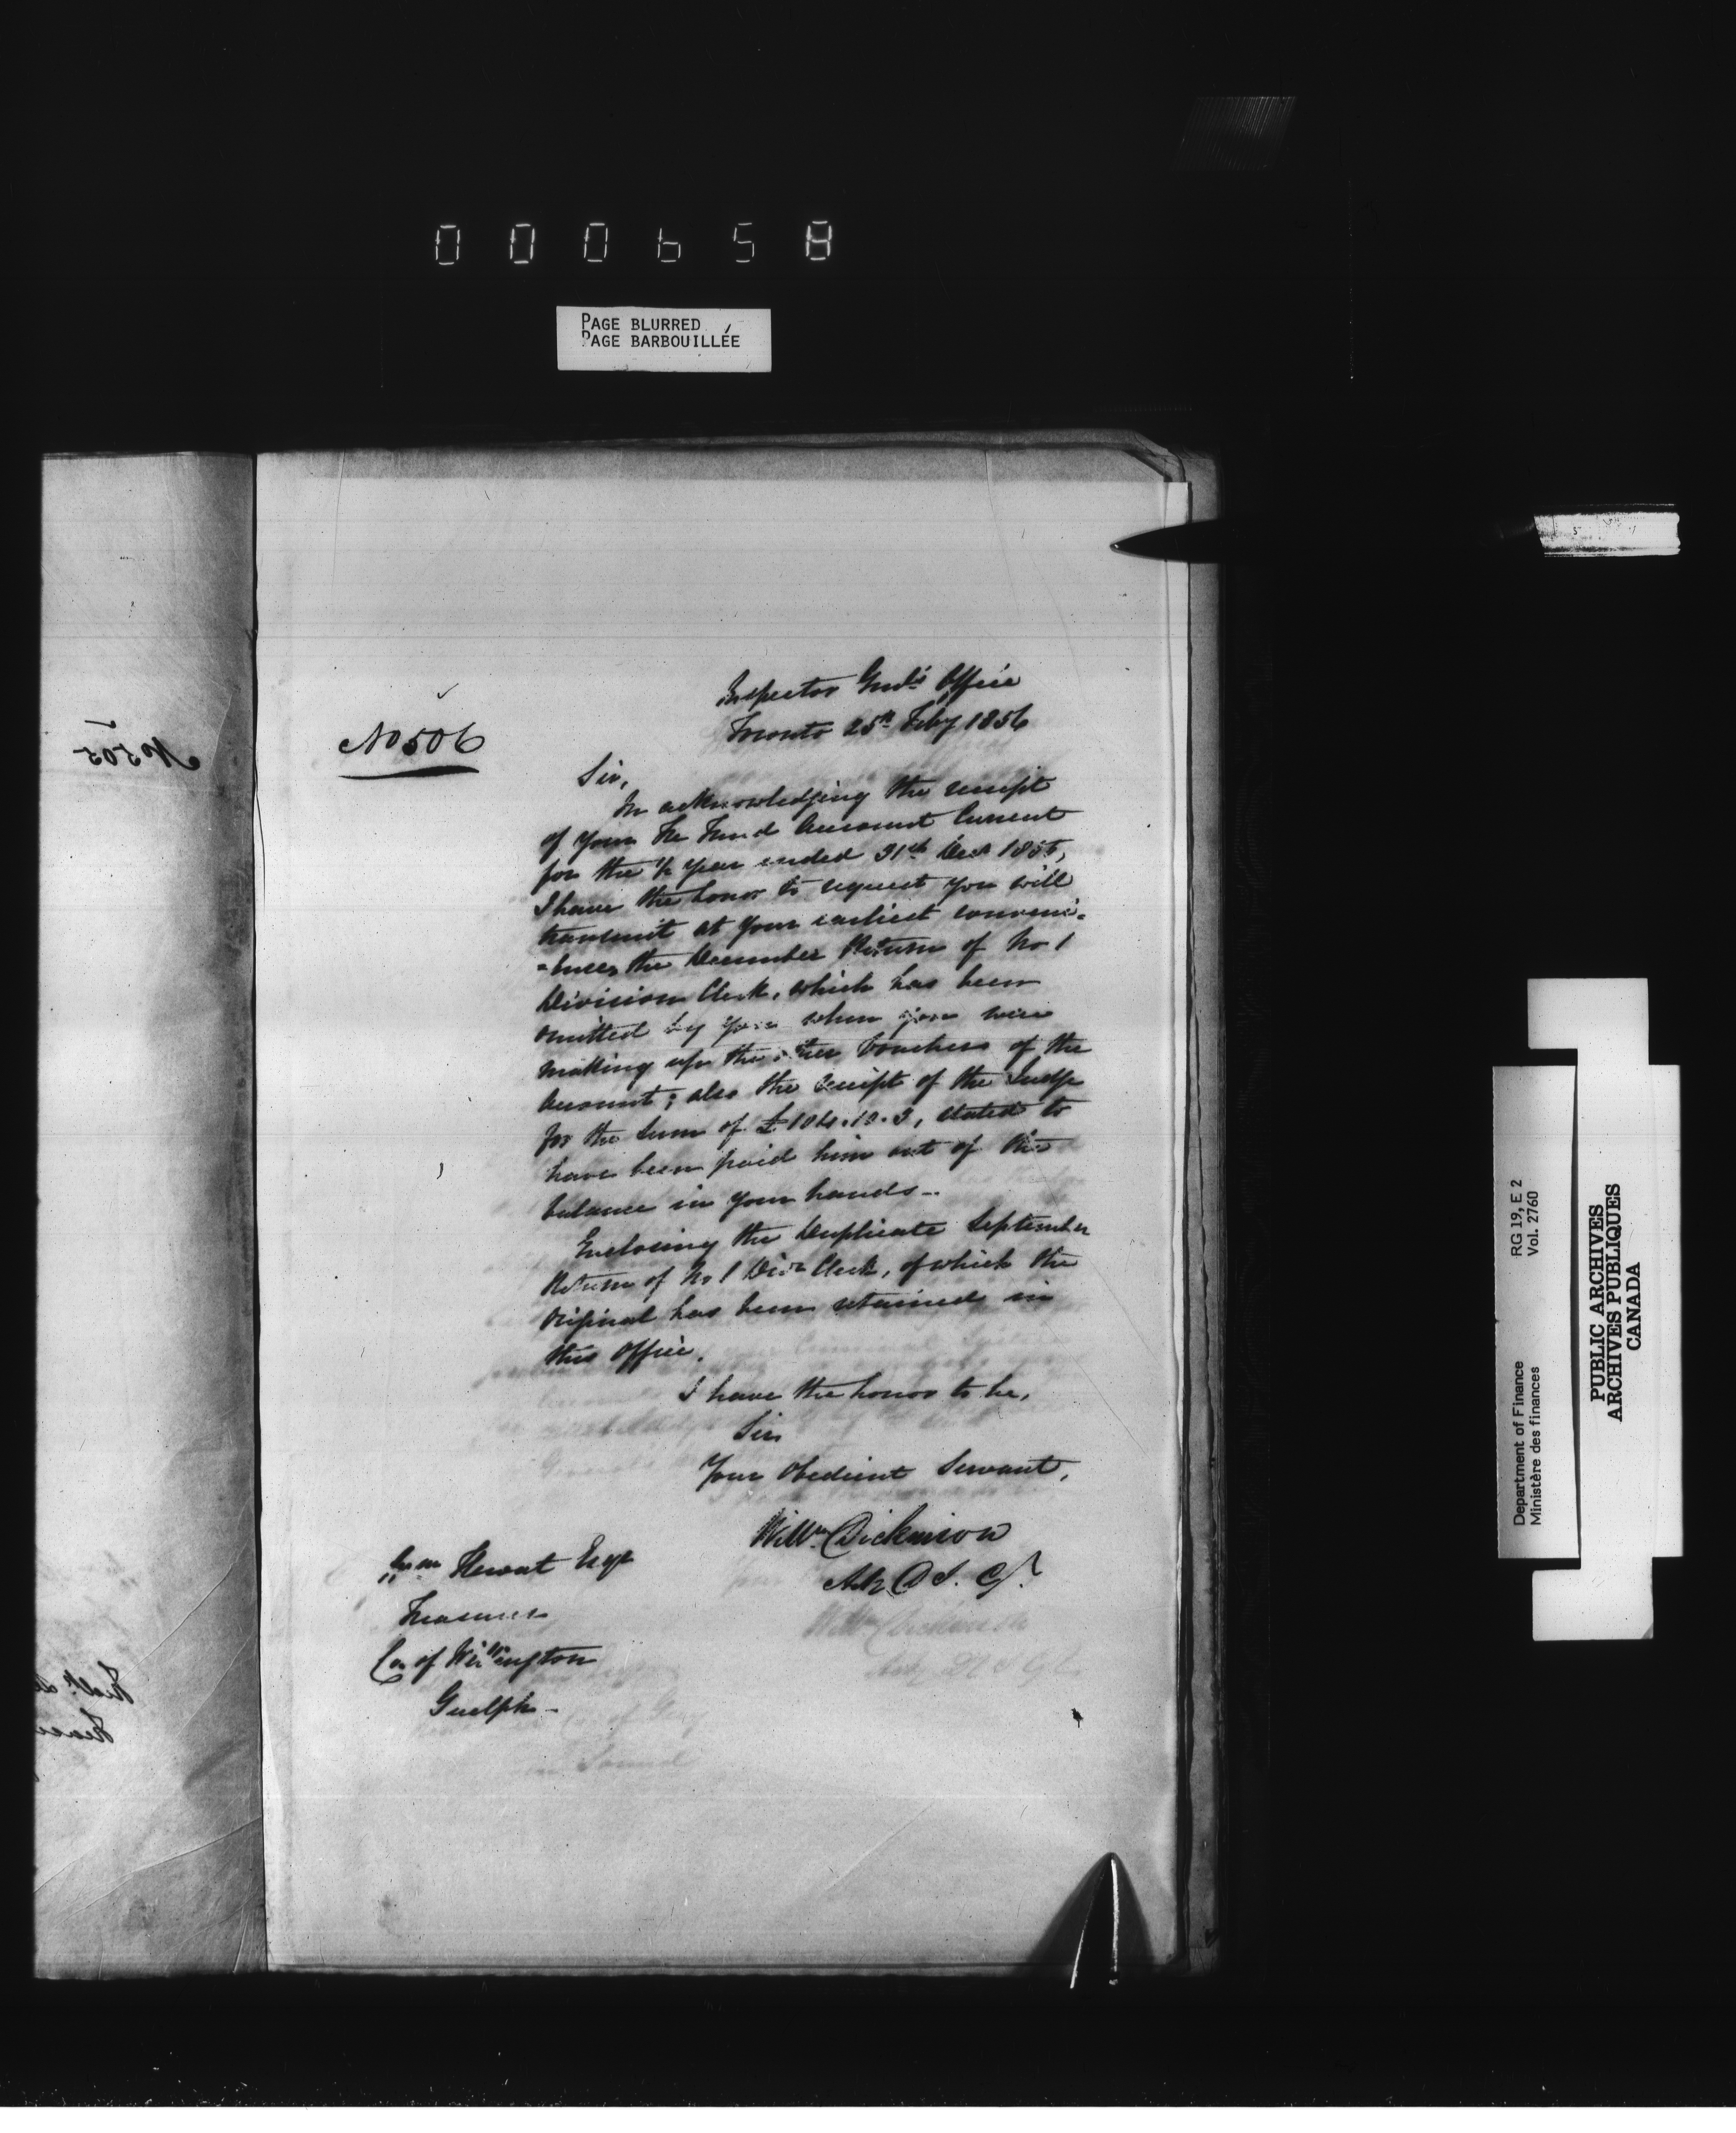 000658
PAGE BLURRED
PAGE BARBOUILLÉE
No 505
No 506
Inspector Genl's Office
Toronto 25th Feby 1856
Sir,
In acknowledging the receipt
of your Fee Fund Account Current
for the ½ year ended 31st Decr 1855,
I have the honor to request you will
transmit at your earliest conveni-
-ence, the December Return of No 1
Division Clerk, which has been
omitted by you when you were
making up the other Vouchers of the
Account; also the receipt of the Judge
for the Sum of £104.10.3, stated to
have been paid him out of the
balance in your hands..
Enclosing the Duplicate September
Return of No 1 Divn Clerk, of which the
Original has been retained in
this Office.
I have the honor to be,
Sir
Your Obedient Servant,
Willm Dickinson
A D I. G.
Wm Hewat Esqr
Treasurer
Co. of Wellington
Guelph -
RG 19, E 2
Vol. 2760
Department of Finance
Ministère des finances
PUBLIC ARCHIVES
ARCHIVES PUBLIQUES
CANADA